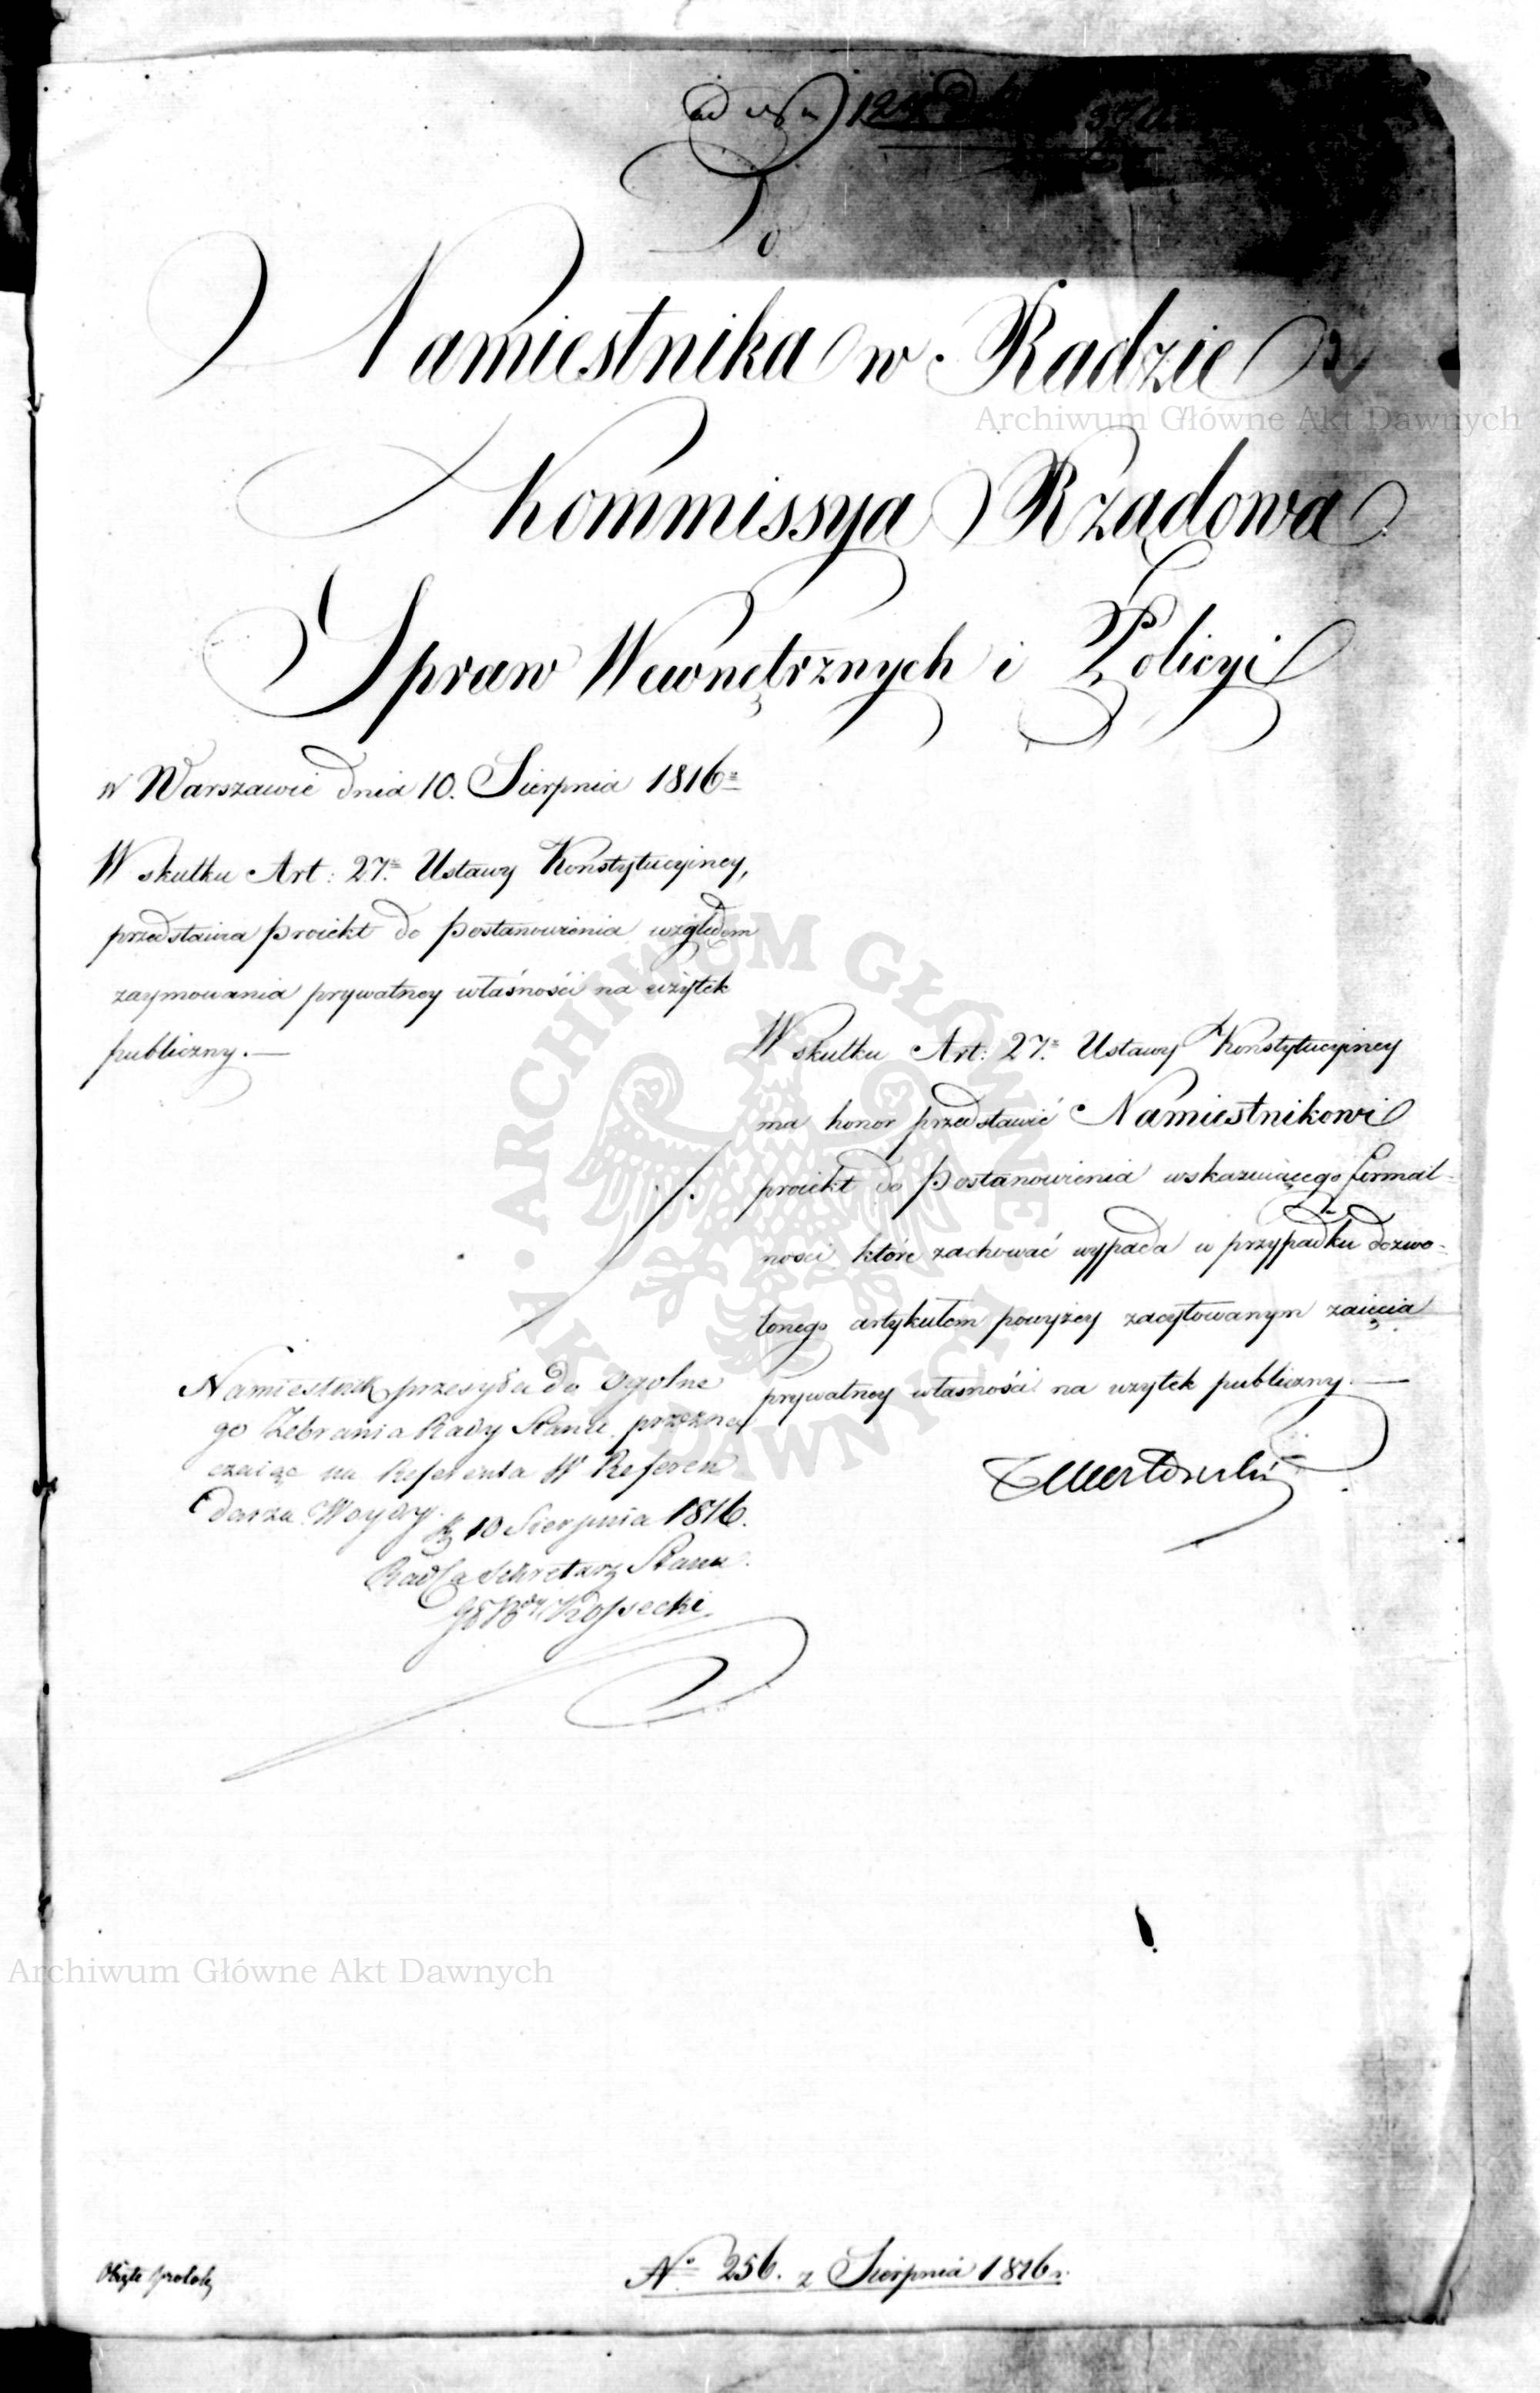 Do
Namiestnika w Radzie
Kommissya Rządowa
Spraw Wewnętrznych i Policyi
w Warszawie dnia 10. Sierpnia 1816
W skutku Art: 27. Ustawy Konstytucyiney,
przedstawia proiekt do postanowienia względem
zaymowania prywatney właśności na użytek
publiczny.—
W skutku Art: 27. Ustawy Konstytucyiney
ma honor przedstawić Namiestnikowi
proiekt do postanowienia wskazuiącego formal-
ności które zachować wypada w przypadku dozwo-
lonego artykułem powyżey zacytowanym zaięcia
prywatney własności na użytek publiczny.—
Namiestnik przesyła do Ogolne
go Zebrania Rady Stanu przezna
czaiąc na Referenta W Referen
darza Woydy.
10 Sierpnia 1816.
Radca Sekretarz Stanu
Kossecki
No 256. z Sierpnia 1816 r.
Archiwum Główne Akt Dawnych
Archiwum Główne Akt Dawnych
ARCHIWUM GŁÓWNE AKT DAWNYCH